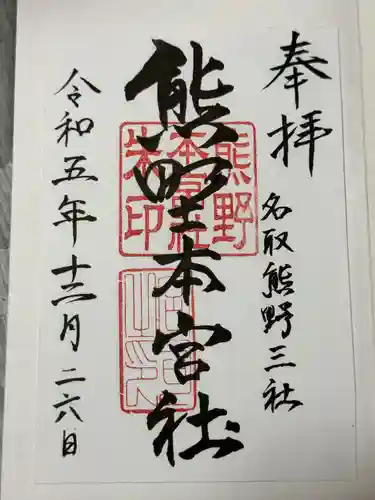 奉拝
名取熊野三社
熊野本宮社
令和五年十二月二六日
熊野
本宮社
朱印